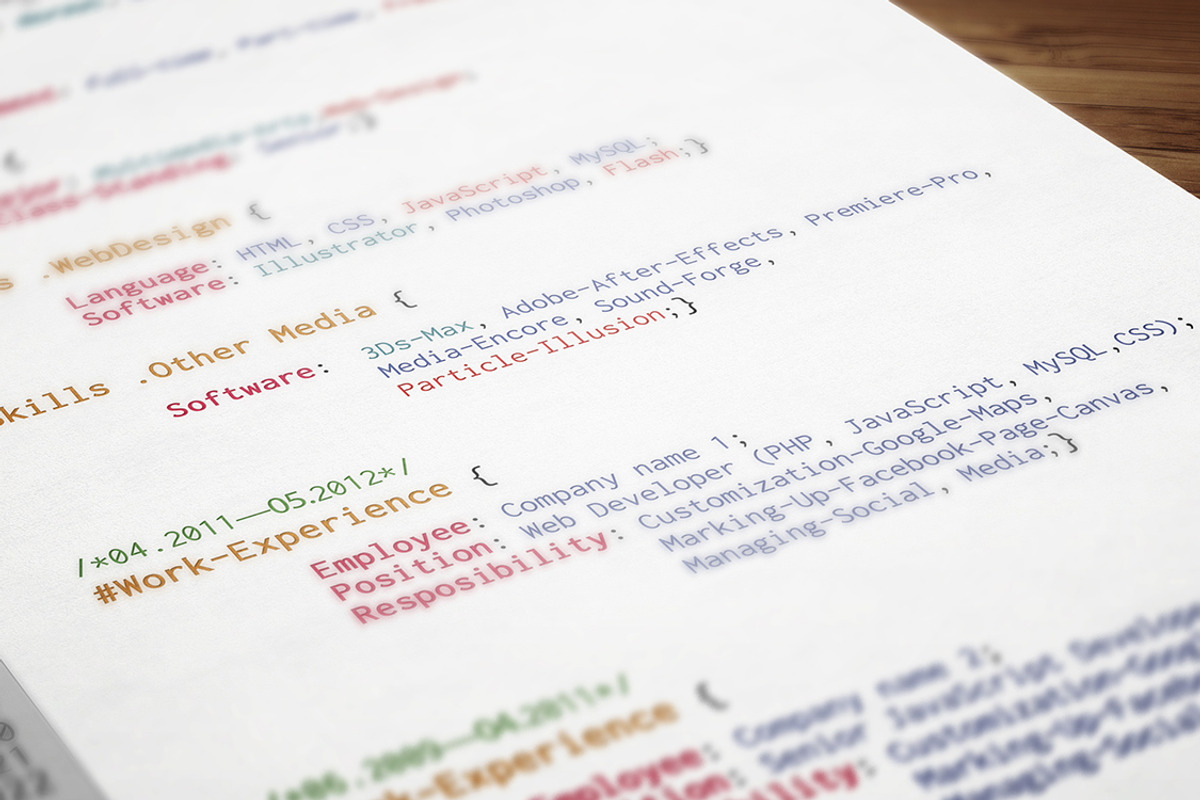 Full-time, Part-time,
{
Multimedia-Arts, Web-Design;
Class-Standing: Senior;}
.WebDesign {
Language: HTML, CSS, JavaScript, MySQL;
Software: Illustrator, Photoshop, Flash;}
Skills .Other Media {
Software: 3Ds-Max, Adobe-After-Effects, Premiere-Pro,
Media-Encore, Sound-Forge,
Particle-Illusion;}
/*04.2011—05.2012*/
#Work-Experience {
Employee: Company name 1;
Position: Web Developer (PHP, JavaScript, MySQL,CSS);
Resposibility: Customization-Google-Maps,
Marking-Up-Facebook-Page-Canvas,
Managing-Social, Media;}
/*06.2009—04.2011*/
rk-Experience {
Employee: Company name 2;
tion: Senior JavaScript Develop
bility: Customization-Goog
Marking-Up-Facebo
Managing-Social